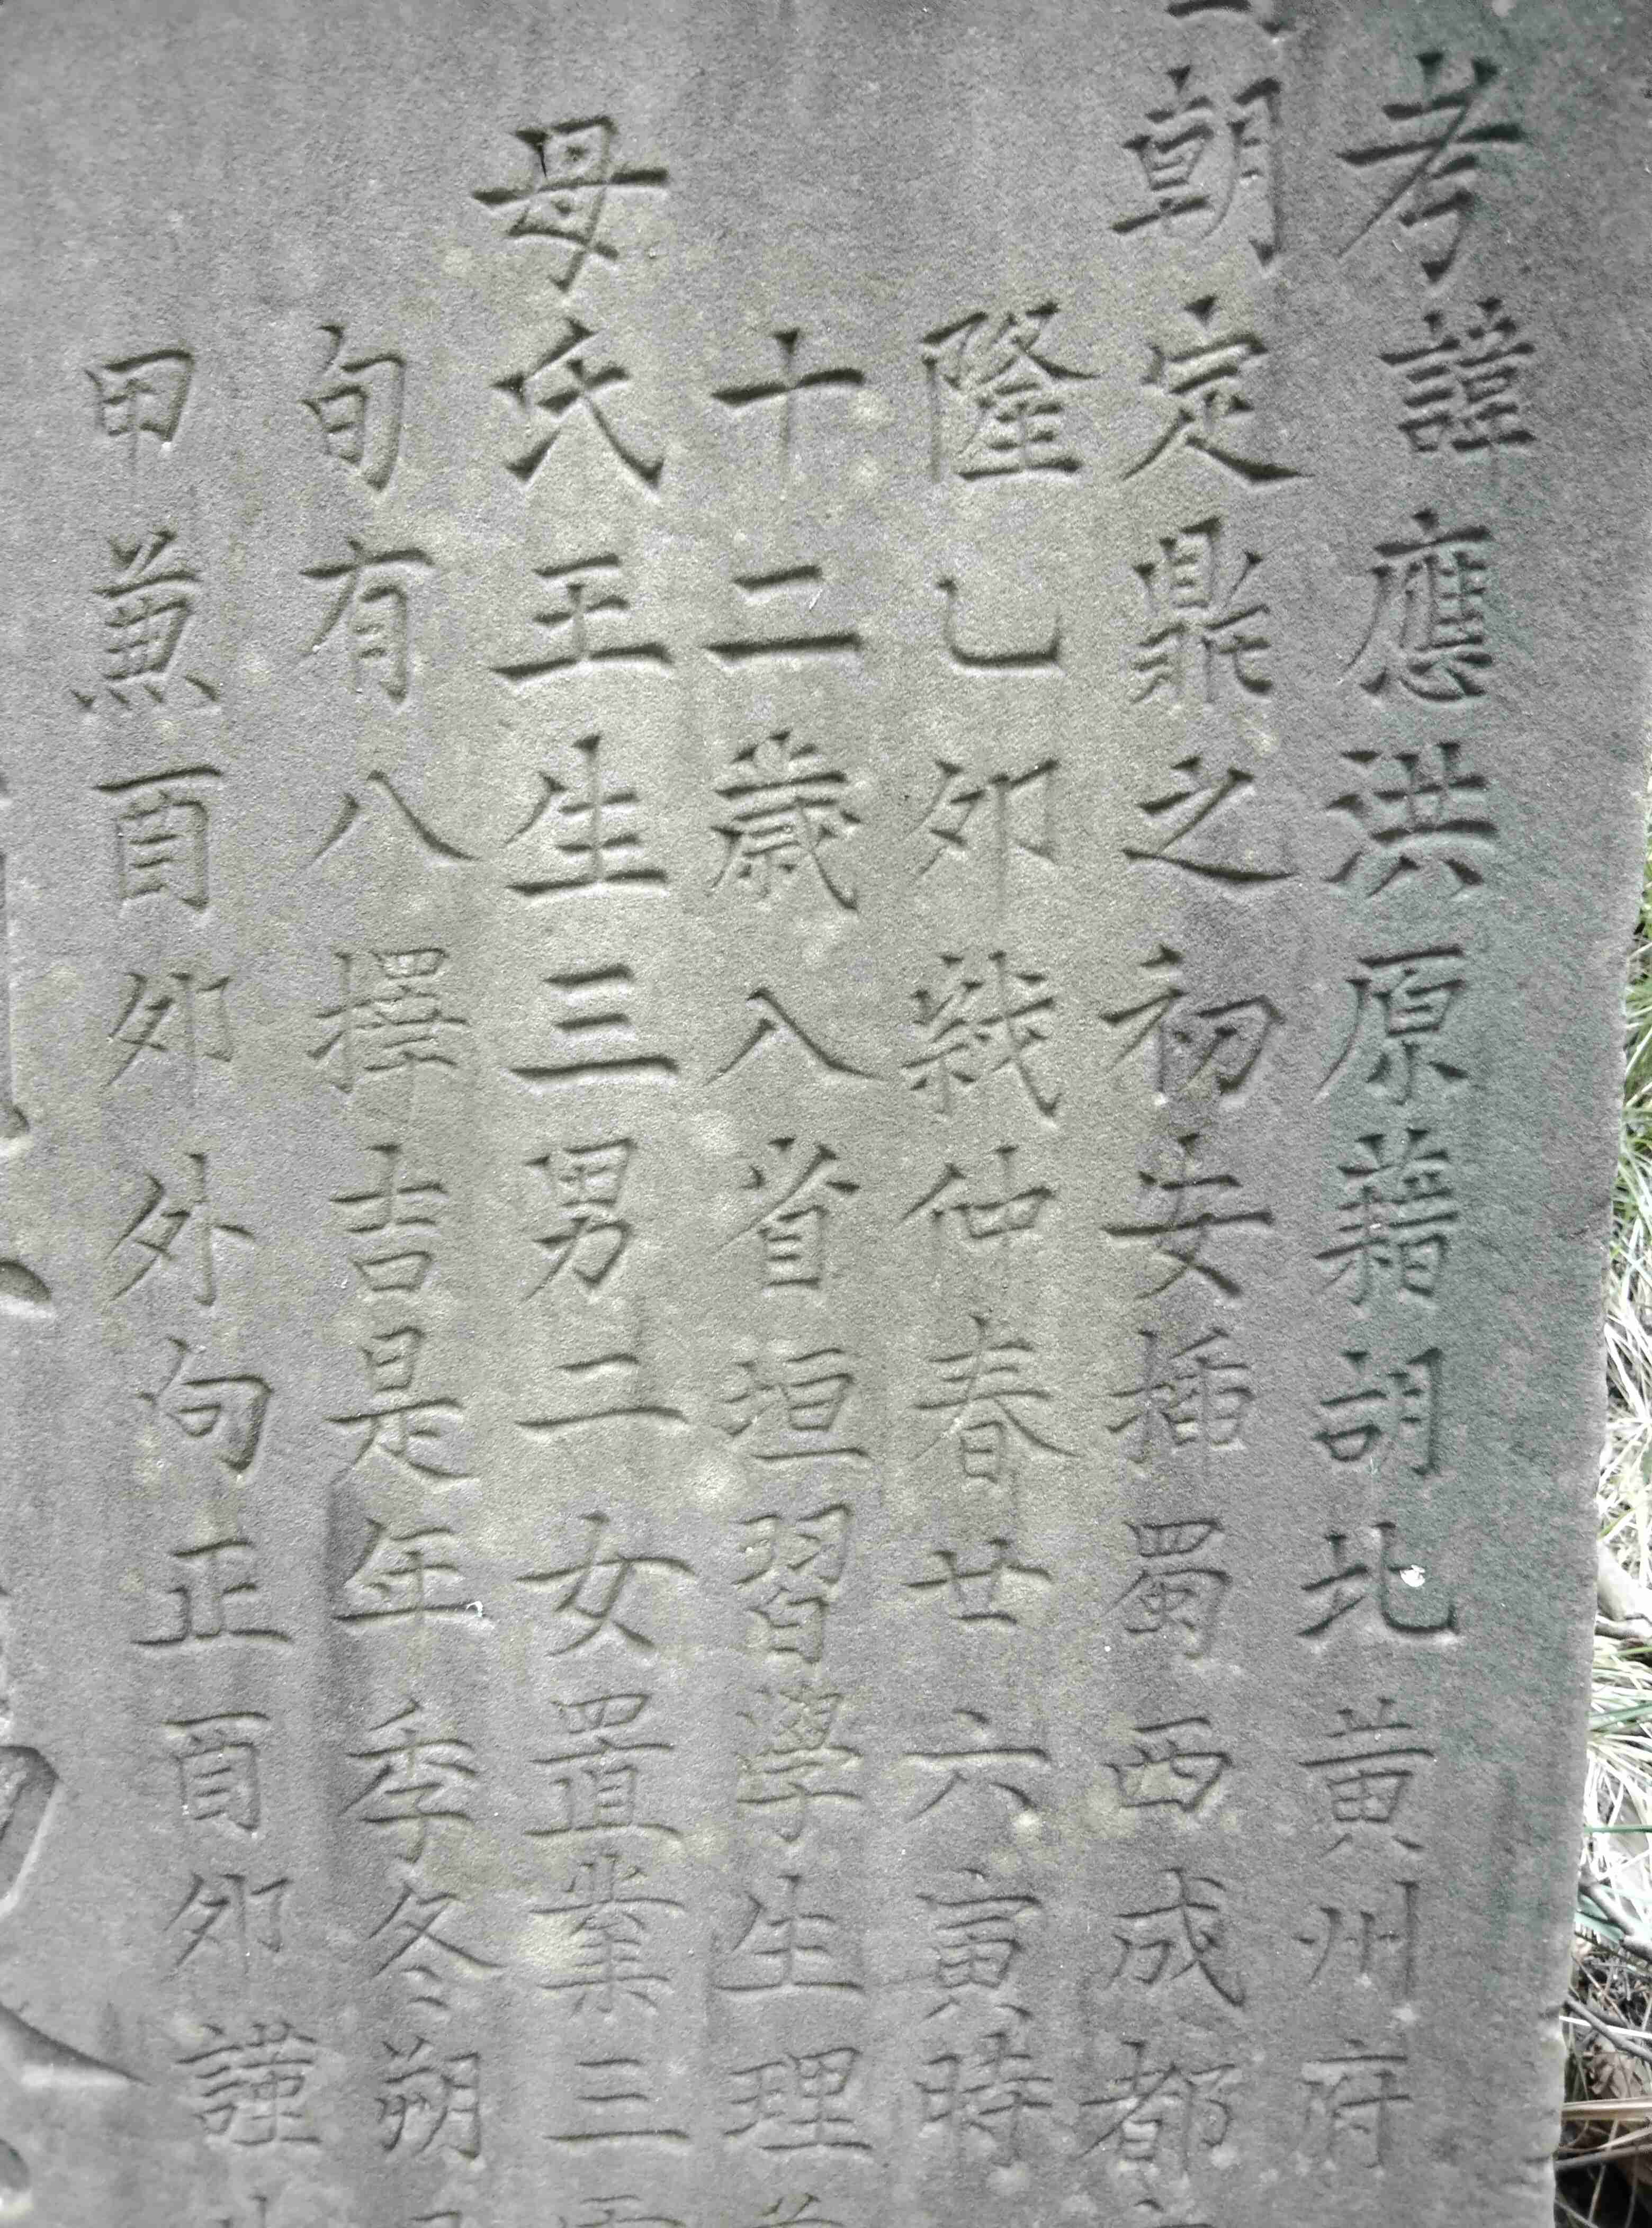 考諱應洪原籍胡北黃州府
朝定鼎之初安插蜀西成都
隆乙卯歲仲春廿六寅時
十二歲入省垣習學生理
母氏王生三男二女置業三
旬有八擇吉是年季冬朔
甲兼酉卯外向正酉卯謹